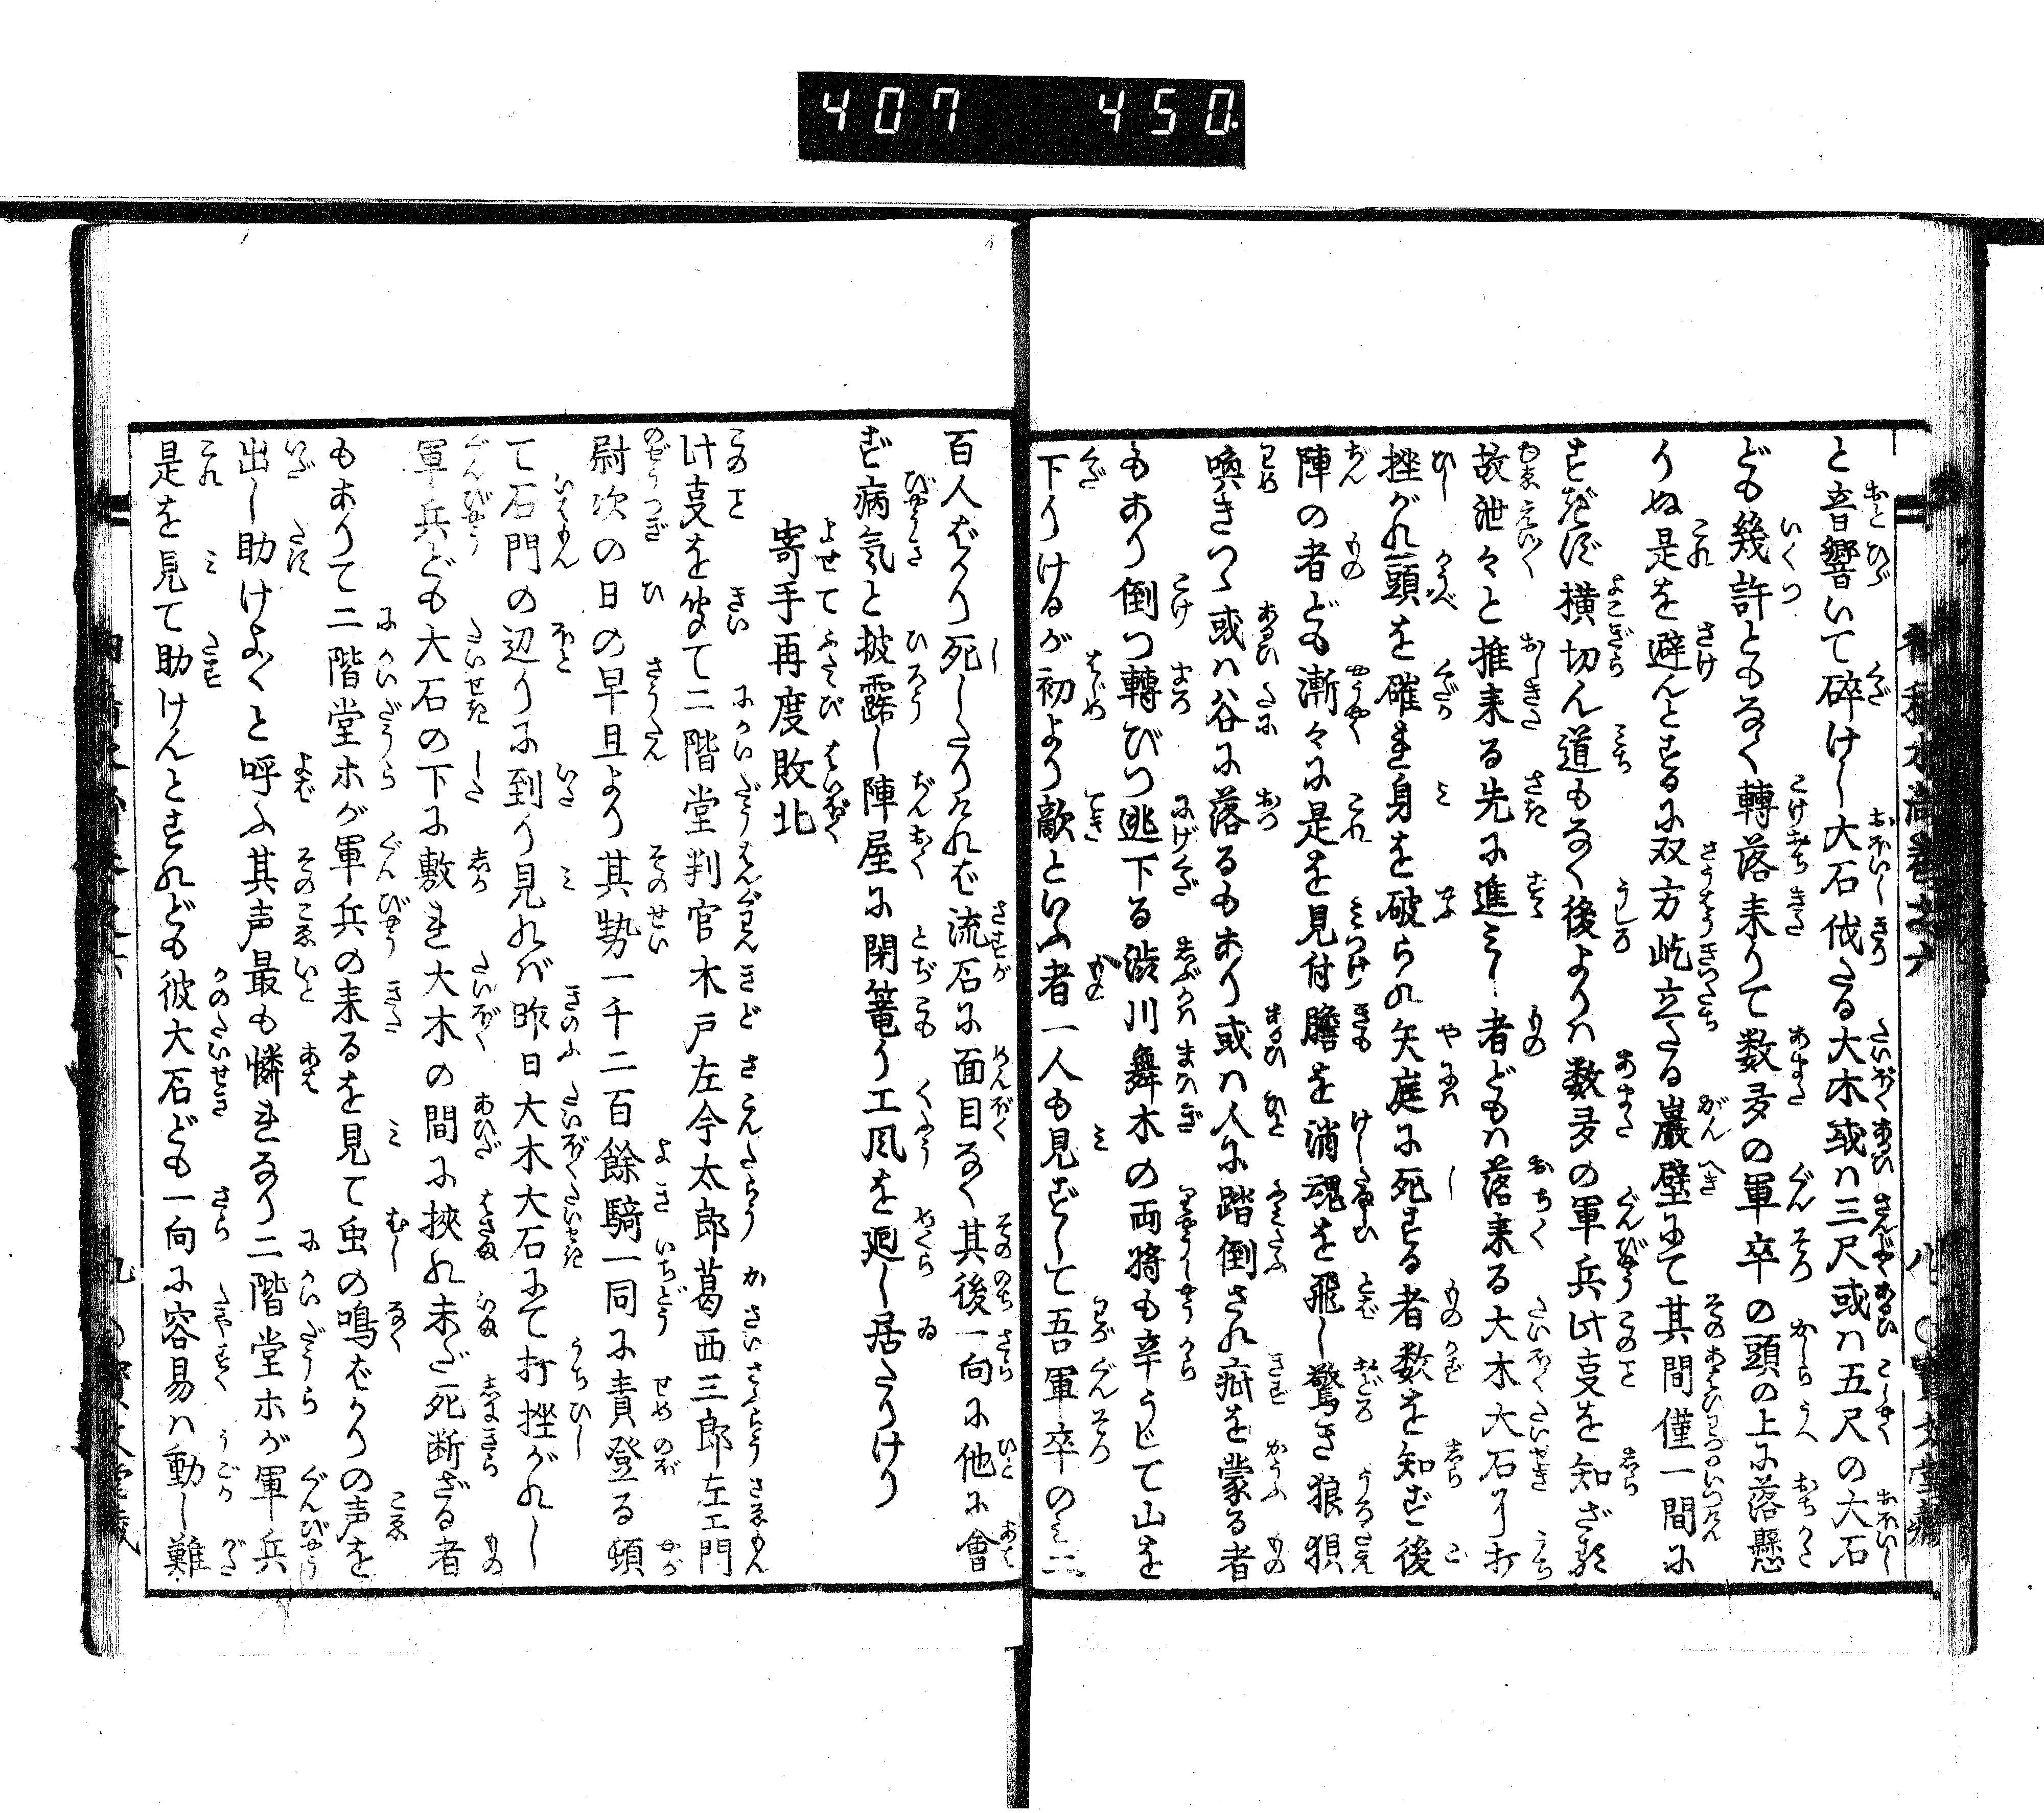 407 450.
と音響いて碎けし大石伐たる大木或ハ三尺或ハ五尺の大石
ども幾許ともなく轉落来りて数多の軍卒の頭の上に落懸
りぬ是を避んとするに双方屹立たる巌壁にて其間僅一間に
すぎず横切ん道もなく後よりハ数多の軍兵此叓を知ざる
故泄々と推来る先に進ミし者どもハ落来る大木大石に打
挫がれ頭を碓き身を破られ矢庭に死する者数を知ず後
陣の者ども漸々に是を見付膽を消魂を飛し驚き狼狽
喚きつゝ或ハ谷に落るもあり或ハ人に踏倒され疵を蒙る者
もあり倒つ轉びつ逃下る渋川舞木の両將も辛うじて山を
下りけるが初より敵といふ者一人も見ずして吾軍卒のミ二
百人ばかり死したりければ流石に面目なく其後一向に他に會
ず病気と披露し陣屋に閉篭り工风を廻し居たりけり
寄手再度敗北
此叓を聞て二階堂判官木戸左今太郎葛西三郎左エ門
尉次の日の早旦より其勢一千二百餘騎一同に責登る頓
て石門の辺りに到り見れバ昨日大木大石にて打挫がれし
軍兵ども大石の下に敷き大木の間に挾れ未だ死断ざる者
もありて二階堂ホが軍兵の来るを見て虫の鳴ばかりの声を
出し助けよ〱と呼ふ其声最も憐きなり二階堂ホが軍兵
是を見て助けんとすれども彼大石ども一向に容易ハ動し難